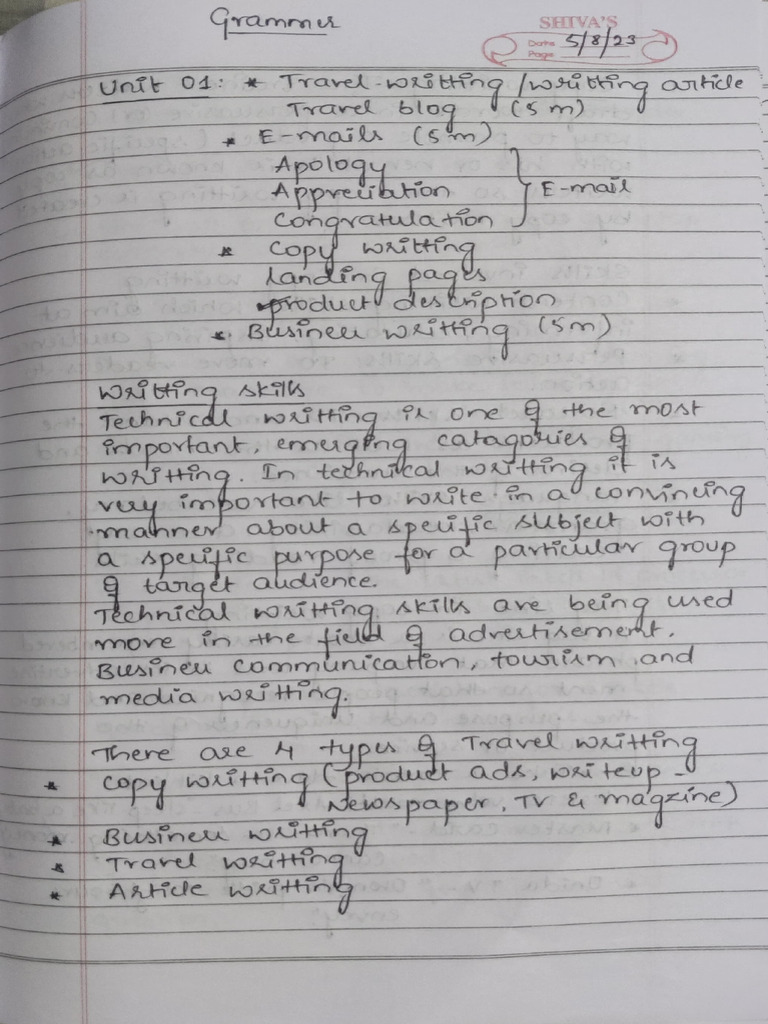 Grammer
SHIVA'S
Date 5/8/23
Page
Unit 01: * Travel-writting/writting article
Travel blog (5m)
* E-mails (5m)
Apology
Appreciation } E-mail
Congratulation
* Copy writting
landing pages
product description
* Business writting (5m)
Writting skills
Technical writting is one of the most
important, emerging catagories of
writting. In technical writting it is
very important to write in a convincing
manner about a specific subject with
a specific purpose for a particular group
of target audience.
Technical writting skills are being used
more in the field of advertisement,
Business communication, tourism and
media writting.
There are 4 types of Travel writting
* Copy writting (product ads, writeup -
Newspaper, TV & magzine)
* Business writting
* Travel writting
* Article writting